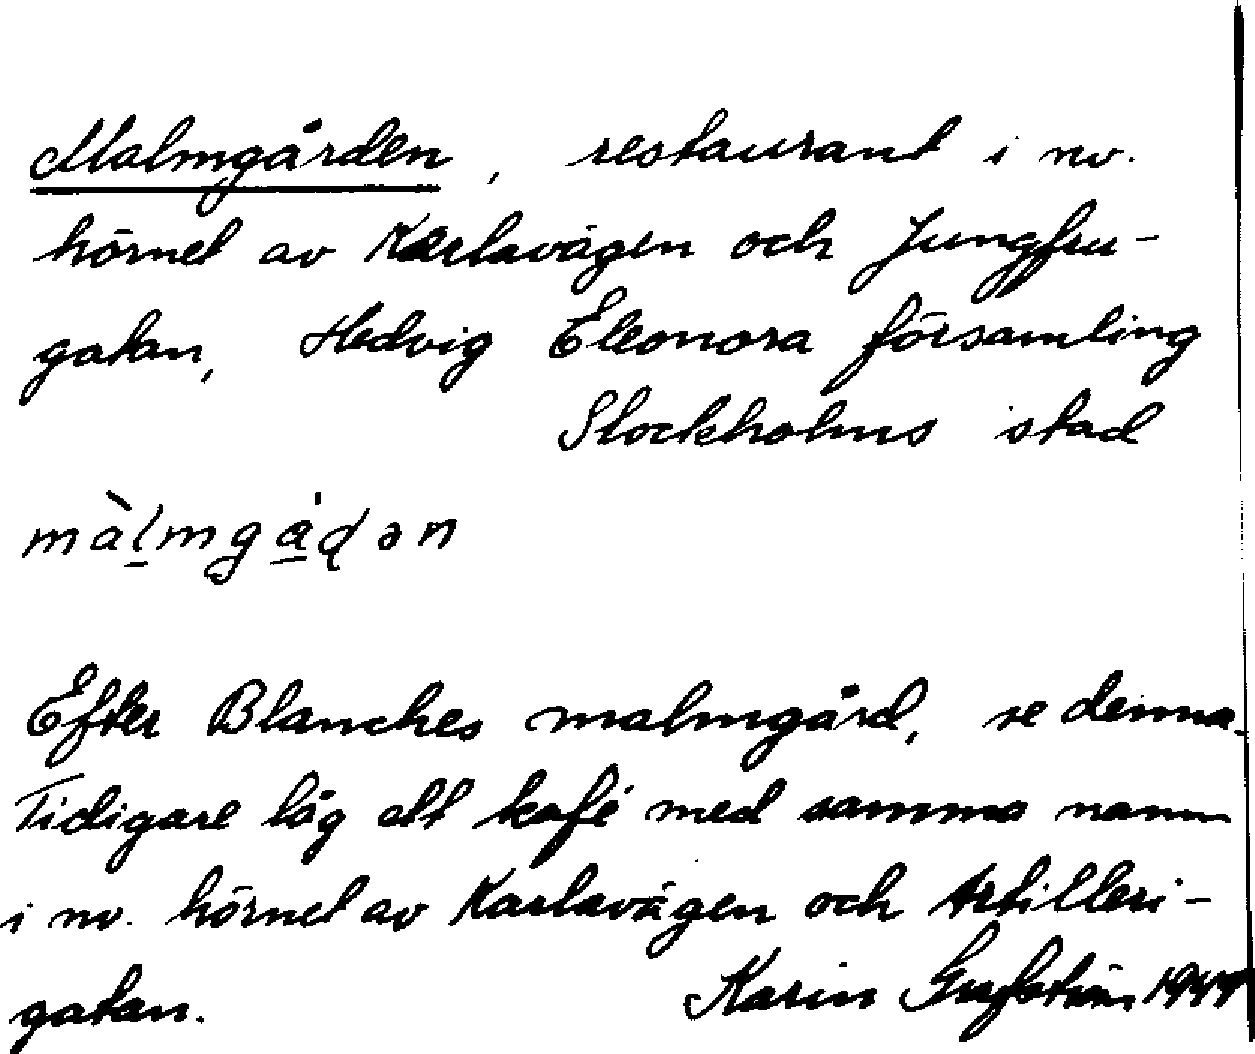 Malmgården, restaurant i nv.
hörnet av Karlavägen och Jungfru-
gatan, Hedvig Eleonora församling
Stockholms stad
màl̠mgǻ̠ɖən
Efter Blanches malmgård, se denna.
Tidigare låg ett kafé med samma namn
i nv. hörnet av Karlavägen och Artilleri-
gatan. Karin